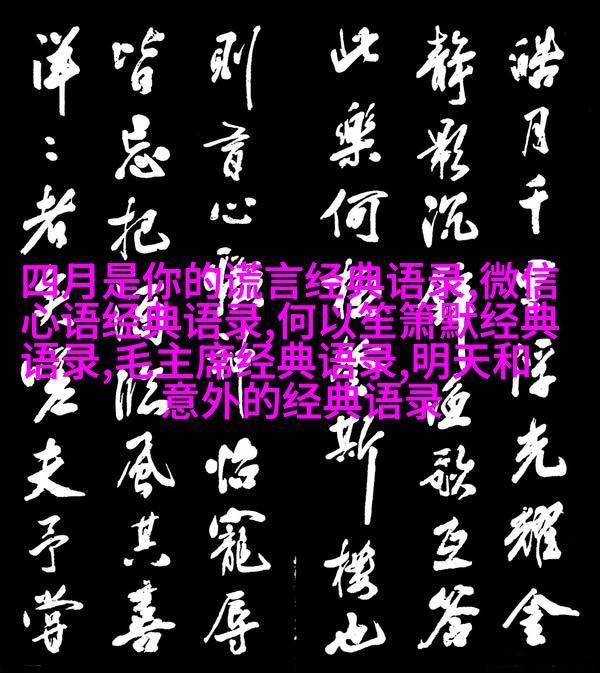 皓月千浮光耀金
靜影沉漁歌互答
此樂何極斯樓也
則有心曠神怡寵辱
皆忘把酒臨風其喜
洋〻者矣嗟夫予嘗
四月是你的谎言经典语录,微信
心语经典语录,何以笙箫默经典
语录,毛主席经典语录,明天和
意外的经典语录